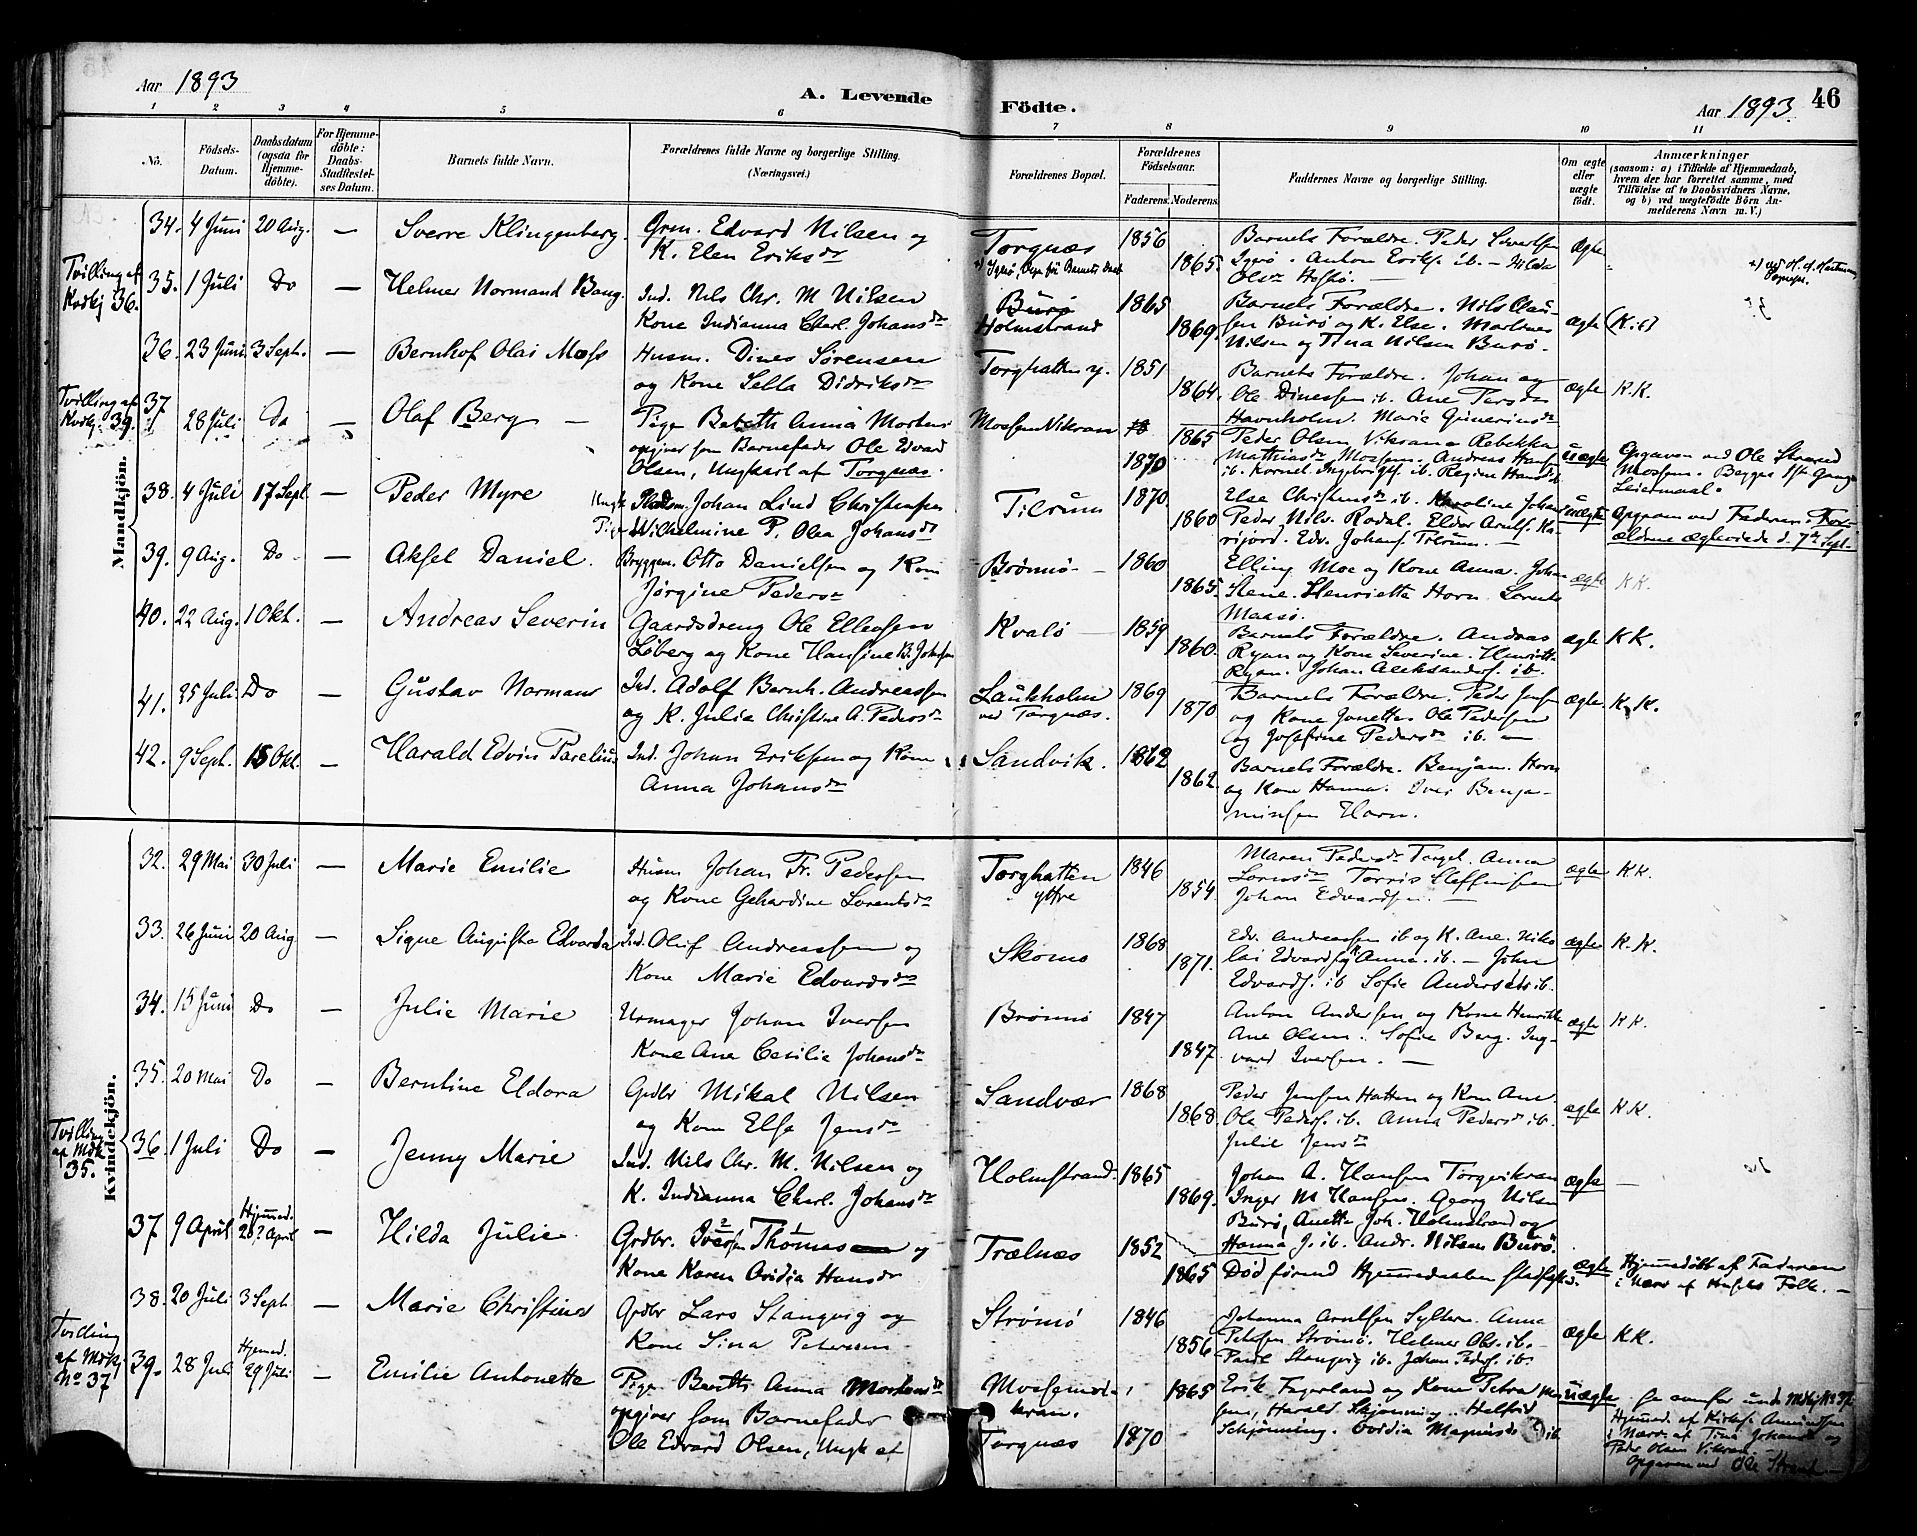 Aar 1893
A. Levende
Födte.
Aar 1893.
46
1 2 3 4 5 6 7 8 9 10 11
No.
Födsels-
Datum.
Daabsdatum
(ogsaa for
Hjemme-
döbte).
For Hjemme-
döbte:
Daabs-
Stadfæstel-
ses Datum.
Barnets fulde Navn.
Forældrenes fulde Navne og borgerlige Stilling.
(Næringsvei.)
Forældrenes Bopæl.
Forældrenes
Födselsaar.
Faderens. Moderens.
Faddernes Navne og borgerlige Stilling.
Om ægte
eller
uægte
födt.
Anmærkninger
(saasom: a) i Tilfælde af Hjemmedaab,
hvem der har forrettet samme, med
Tilföielse af to Daabsvidners Navne,
og b) ved uægtefödte Börn An-
melderens Navn m. V.)
Mandkjön.
34. 4 Juni 20 Aug. — Sverre Klingenberg.
Edvard Nilsen og
K. Elen Eriksdr
Torgnæs
1856
1865.
Barnets Forældre. Peder
Anton Eriks. ib. — Hilda
ægte
Tvilling af
Kvdkj 36.
35. 1 Juli Do — Helmer Normand Bang.
Ind. Nils Chr. M Nilsen
Kone Indianna Charl. Johansdr
Burø
Holmstrand
1865
1869
Barnets Forældre. Nils Clau-
sen Burø og K. Else. Martinus
Nilsen og Tina Nilsen Burø.
ægte
36. 23 Juni 3 Sept. — Bernhof Olai Moss
Husm. Dines Sørensen
og Kone Sella Didriksdr
Torghatten y.
1851
1864.
Barnets Forældre. Johan og
Ole Dinessen ib. Ane
Havnholm. Marie
ægte K.K.
Tvilling af
Kvdkj. 39.
37 28 Juli Do — Olaf Berg —
Pige Bereth Anna Mortens
opgiver som Barnefader Ole Edvard
Olsen, Ungkarl af Torgnæs.
Mossem Vikran
1865
1870
Peder Olsen Vikran Rebekka
Mathiasdr Mossem. Andreas Hans
uægte
Opgaven ved Ole Strand
Mossem. Begges 1ste Gangs
Leiermaal.
38. 4 Juli 17 Sept. — Peder Myre
Ungk. Johan Lind Christensen
Pige Wilhelmine P. Olea Johansdr
Tilrum
1870
1860
Else Christensdr ib. Karoline Johans
Peder Nilss. Rodal.
Edv. Johans. Tilrum. —
uægte
Opgaven ved Faderen. For-
ældrene ægteviede d. 7de Sept.
39. 9 Aug. Do — Aksel Daniel.
Bryggem. Otto Danielsen og Kone
Jørgine Pedersdr
Brønnø —
1860
1865.
Elling Moe og Kone Anna. Johan
Stene. Henriette Horn.
Maasø.
ægte KK.
40. 22 Aug. 1 Okt. — Andreas Severin
Gaardsdreng Ole Elleosen
Liberg og Kone Hansine B. Johnsen
Kvalø —
1859
1860.
Barnets Forældre. Andreas
Ryan og Kone Severine. Henriette
Ryan. Johan Aleksanders. ib.
ægte K K.
41. 25 Juli Do — Gustav Normann
Ind. Adolf Bernh. Andreassen
og K. Julia Christine A. Pedersdr
Laukholm
ved Torgnæs.
1869
1870
Barnets Forældre. Peder Jens
og Kone Jonette. Ole Pedersen
og Josefine Pedersdr ib. —
ægte K.K.
42. 9 Sept. 15 Okt. — Harald Edvin Parelius
Ind. Johan Eriksen og Kone
Anna Johansdr
Sandvik.
1862
1862.
Barnets Forældre. Benjam. Horn
og Kone Hanna. Iver Benja-
minsen Horn.
Kvindekjön.
32. 29 Mai 30 Juli — Marie Emilie
Husm Johan Fr. Pedersen
og Kone Gehardine Lorentsdr
Torghatten
ytre
1846
1854
Maren Pedersdr Torget. Anna
Lornsdr Torris Steffensen
Johan Edvardsen. —
ægte KK.
33. 26 Juni 20 Aug — Signe Augusta Edvarda
Ind. Oluf Andreassen og
Kone Marie Edvardsdr
Skomo
1868
1871.
Edv. Andreassen ib og K. Ane. Niko
lai Edvards og Anna. ib. — Johan
Edvards. ib Sofie Andersdtr ib.
ægte K.K.
34. 15 Juni Do — Julie Marie
Urmager Johan Iversen
Kone Ane Cecilie Johansdr
Brønnø
1847
1847.
Anton Andersen og Kone Henrikke
Ane Olsen. Sofie Berg. Ing-
vard Iversen. —
ægte KK.
35. 20 Mai Do — Berntine Eldora
Grdbr Mikal Nilsen
og Kone Else Jensdr
Sandvær
1868
1868
Peder Jensen Hatten og Kone Ane.
Ole Peders. ib. Anna Pedersdr ib.
Julie Jensdr
ægte KK.
Tvilling
af Mdk
35.
36. 1 Juli Do — Jenny Marie
Ind. Nils Chr. M. Nilsen og
K. Indianna Charl. Johansdr
Holmstrand.
1865
1869.
Johan A. Hansen Torgvikran
Inger M Hansen. Georg Nilsen
Burø, Anette Joh. Holmstrand og
Hanna J. ib. Andr. Nilsen Burø.
ægte —
37 9 April Hjemmed. 28? April — Hilda Julie
Grdbr. Iversen Thomas og
Kone Karen Ovidia Hansdr
Trælnæs
1852
1865
Død førend Hjemmedaaben stadfæstedes.
ægte
Hjemmedøbt af Faderen
i Nærv. af Husets Folk. —
38. 20 Juli 3 Sept. — Marie Christine
Grdbr Lars Stangvig og
Kone Sina Petersen
Strømø
1846
1856
Johanna Arntsen Sylten. Anna
Petersen Strømø. Helmer Ols. ib.
Paul Stangvig ib. Johan Peders. ib.
ægte KK.
Tvilling
af Mdkj
No 37
39. 28 Juli Hjemmed. 29 Juli — Emilie Antonette
Pige Berith Anna Mortensdr
opgiver som Barnefader
Ole Edvard Olsen, Ungk af
Mossemvi-
kran.
Torgnæs
1865
1870
Erik Fagerland og Kone Petra
Harald Schjønning. Halfrid
Schjønning. Ovidia Magnusdr ib
uægte
Se ovenfor under Mdkj No 37
Hjemmed. af
i Nærv. af Tina Johansdr og
Peder Olsen Vikran.
Opgaven ved Ole Strand —